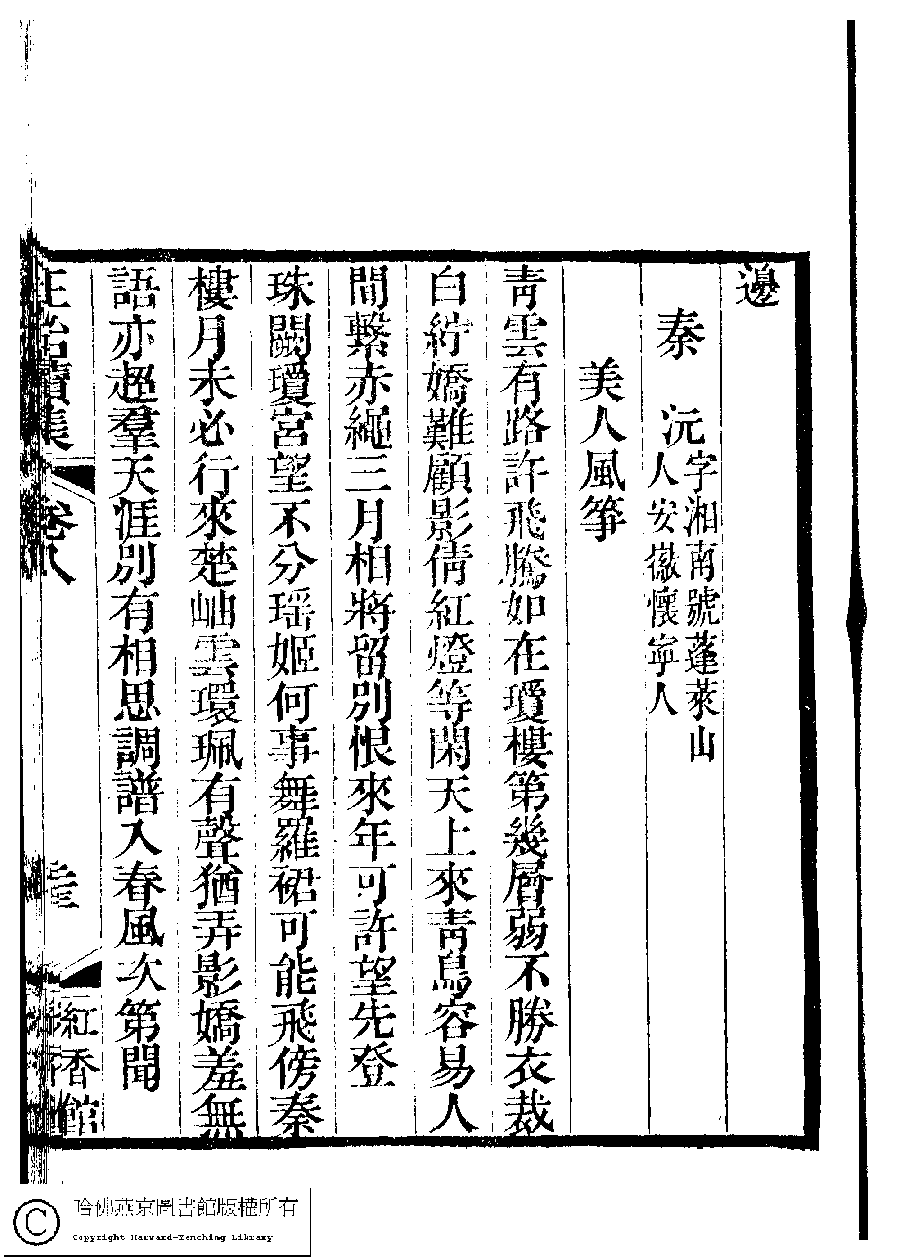 邊
秦　沅字湘南號蓬萊山
人安徽懷寧人
美人風箏
青雲有路許飛騰如在瓊樓第幾層弱不勝衣裁
白紵嬌難顧影倩紅燈等閑天上來青鳥容易人
間繫赤繩三月相將留別恨來年可許望先登
珠闕瓊宮望不分瑶姬何事舞羅裙可能飛傍秦
樓月未必行來楚岫雲環珮有聲猶弄影嬌羞無
語亦超羣天涯別有相思調譜入春風次第聞
正始續集　卷八　紅香館
哈佛燕京圖書館版權所有
Copyright Harvard-Yenching Library